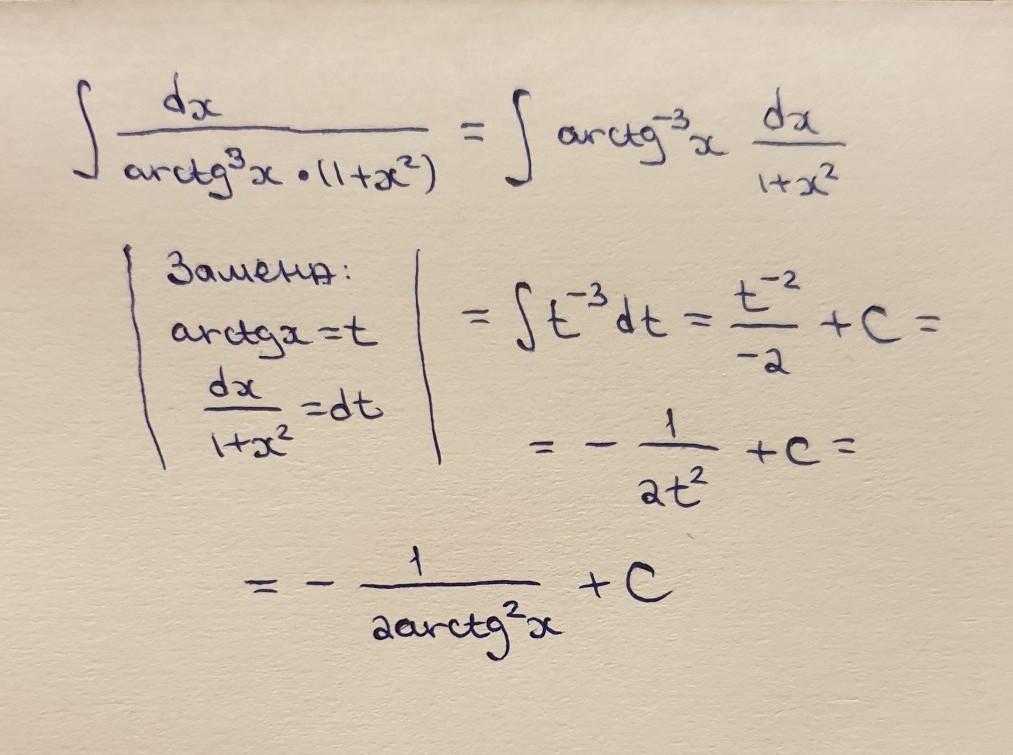 ∫ dx / (arctg³x • (1+x²)) = ∫ arctg⁻³x dx / (1+x²)
| Замена: |
| arctgx = t | = ∫t⁻³dt = t⁻² / -2 + C =
| dx / (1+x²) = dt |
= - 1 / 2t² + C =
= - 1 / 2arctg²x + C